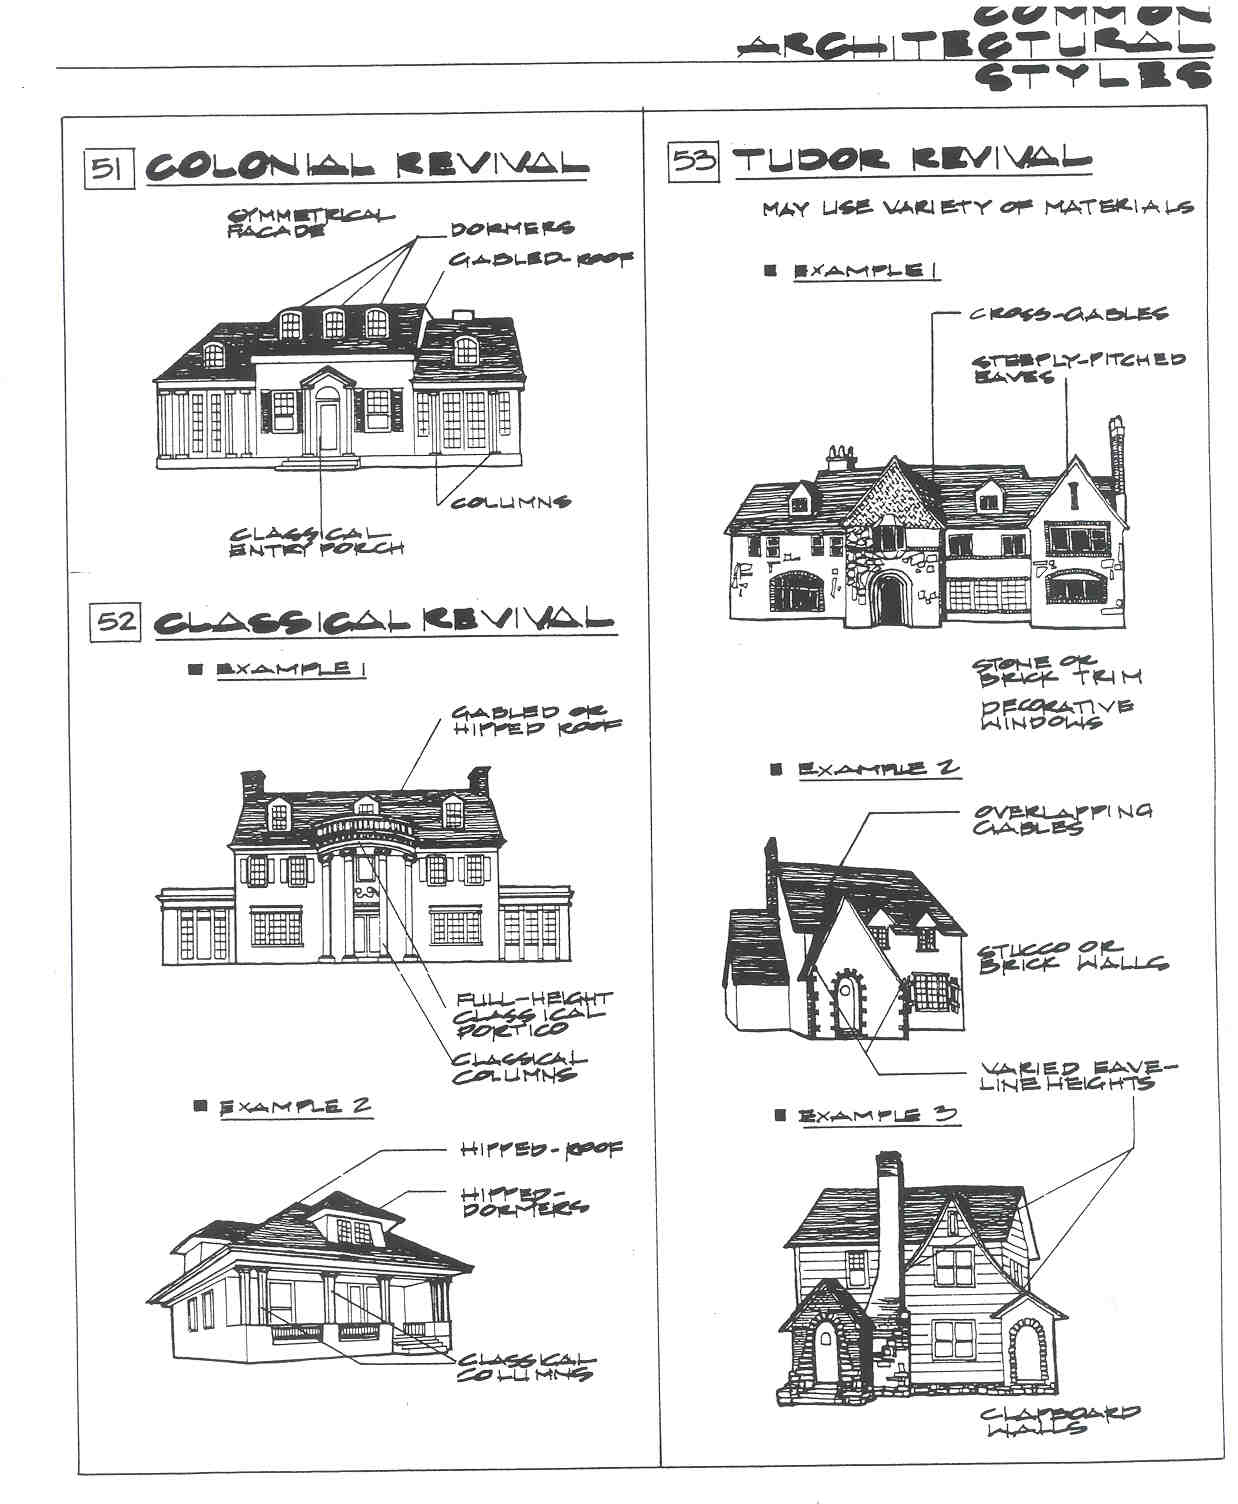 COMMON
ARCHITECTURAL
STYLES
51 COLONIAL REVIVAL
SYMMETRICAL
FACADE
DORMERS
GABLED-ROOF
COLUMNS
CLASSICAL
ENTRY PORCH
52 CLASSICAL REVIVAL
EXAMPLE 1
GABLED OR
HIPPED ROOF
FULL-HEIGHT
CLASSICAL
PORTICO
CLASSICAL
COLUMNS
EXAMPLE 2
HIPPED-ROOF
HIPPED-
DORMERS
CLASSICAL
COLUMNS
53 TUDOR REVIVAL
MAY USE VARIETY OF MATERIALS
EXAMPLE 1
CROSS-GABLES
STEEPLY-PITCHED
EAVES
STONE OR
BRICK TRIM
DECORATIVE
WINDOWS
EXAMPLE 2
OVERLAPPING
GABLES
STUCCO OR
BRICK WALLS
VARIED EAVE-
LINE HEIGHTS
EXAMPLE 3
CLAPBOARD
WALLS